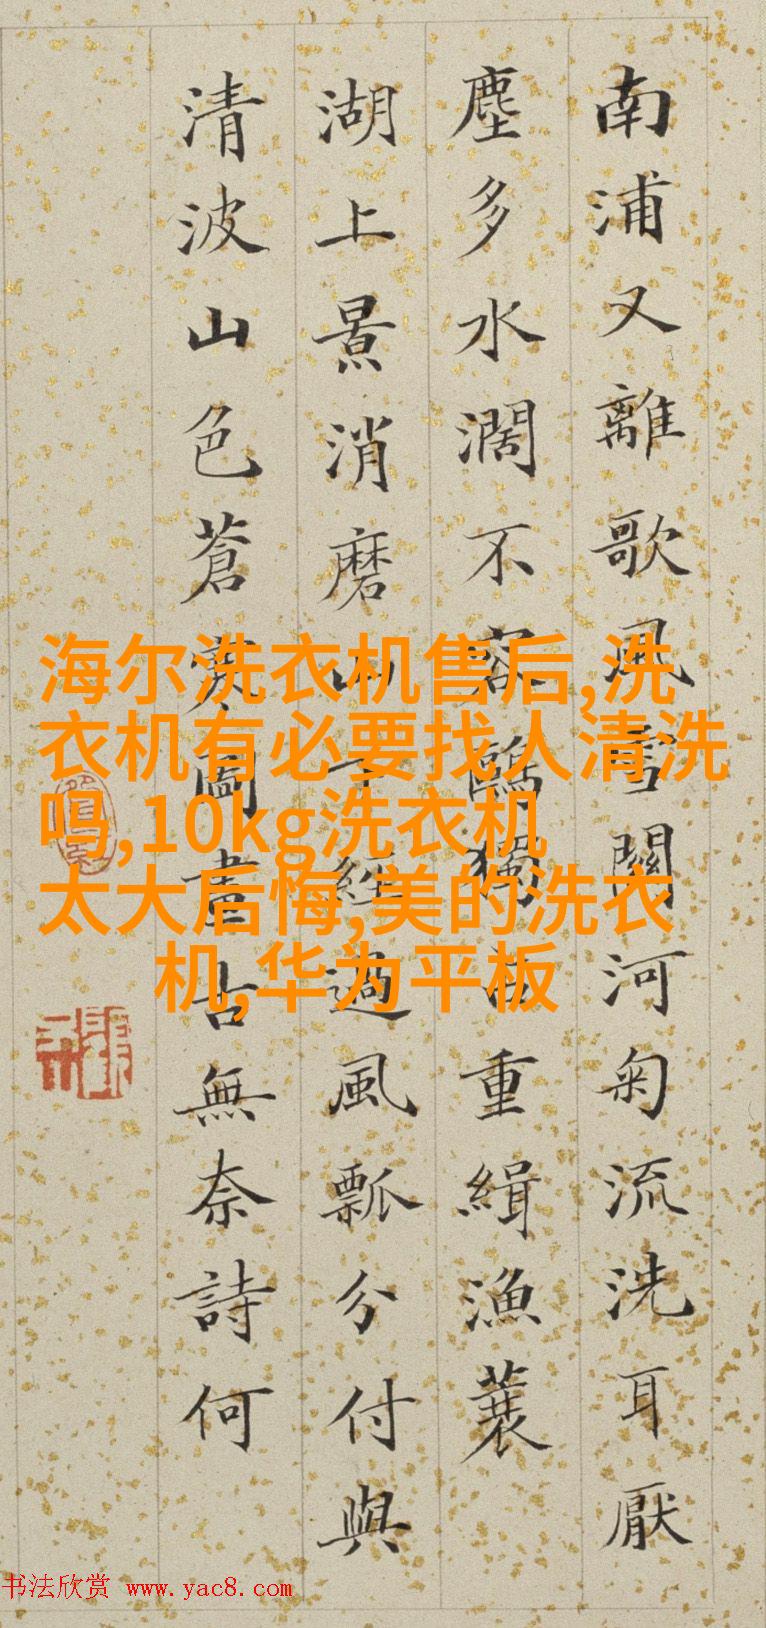 南浦又離歌風雪關河菊流洗耳厭
塵多水濶不容鷗獨占重緝漁蓑
湖上景消磨山下經過風瓢分付與
清波山色蒼寒圖畫古無奈詩何
海尔洗衣机售后,洗
衣机有必要找人清洗
吗,10kg洗衣机
太大后悔,美的洗衣
机,华为平板
书法欣赏 www.yac8.com